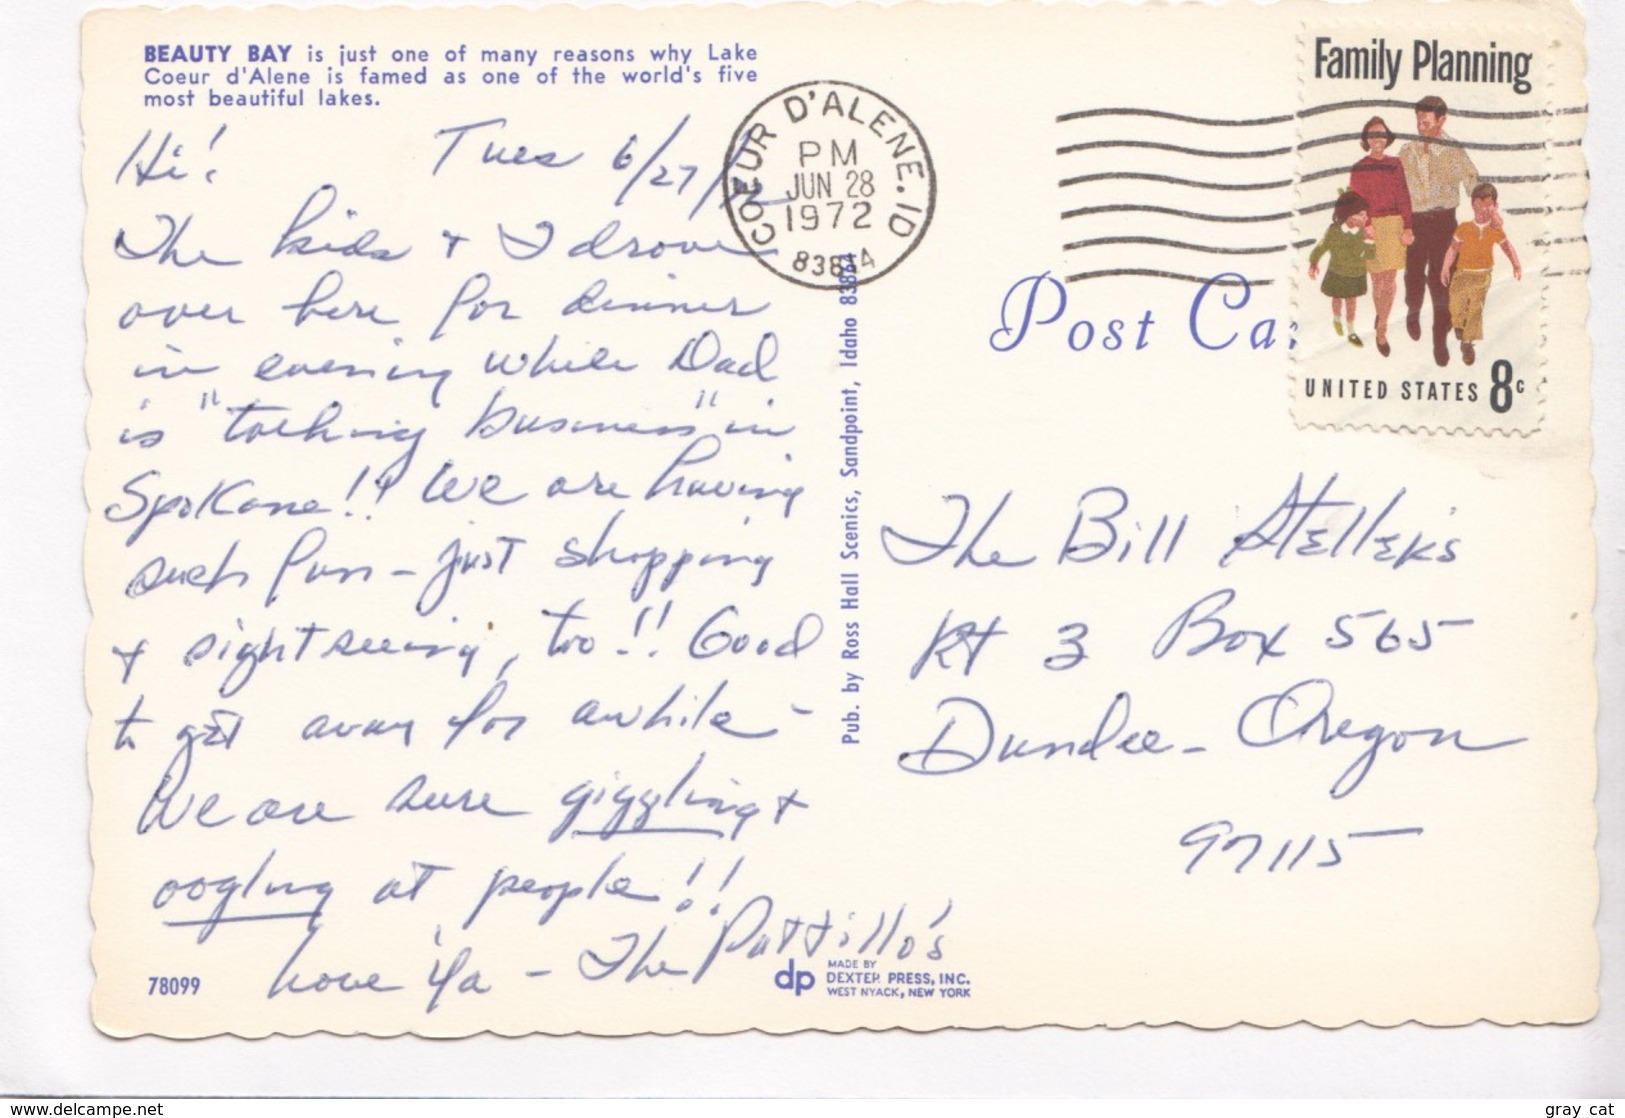 BEAUTY BAY is just one of many reasons why Lake
Coeur d'Alene is famed as one of the world's five
most beautiful lakes.
Hi! Tues 6/27/72
The kids & I drove
over here for dinner
in evening while Dad
is "talking business" in
Spokane!! We are having
such fun - just shopping
& sightseeing, too!! Good
to get away for awhile -
We are sure giggling &
oogling at people!!
Love 'Ya - The Pattillo's
78099
dp
MADE BY
DEXTER PRESS, INC.
WEST NYACK, NEW YORK
Pub. by Ross Hall Scenics, Sandpoint, Idaho 83864
COEUR D'ALENE. ID
PM
JUN 28
1972
83814
Post Ca
Family Planning
UNITED STATES 8c
The Bill Steller's
Rt 3 Box 565
Dundee - Oregon
97115
www.delcampe.net
gray cat